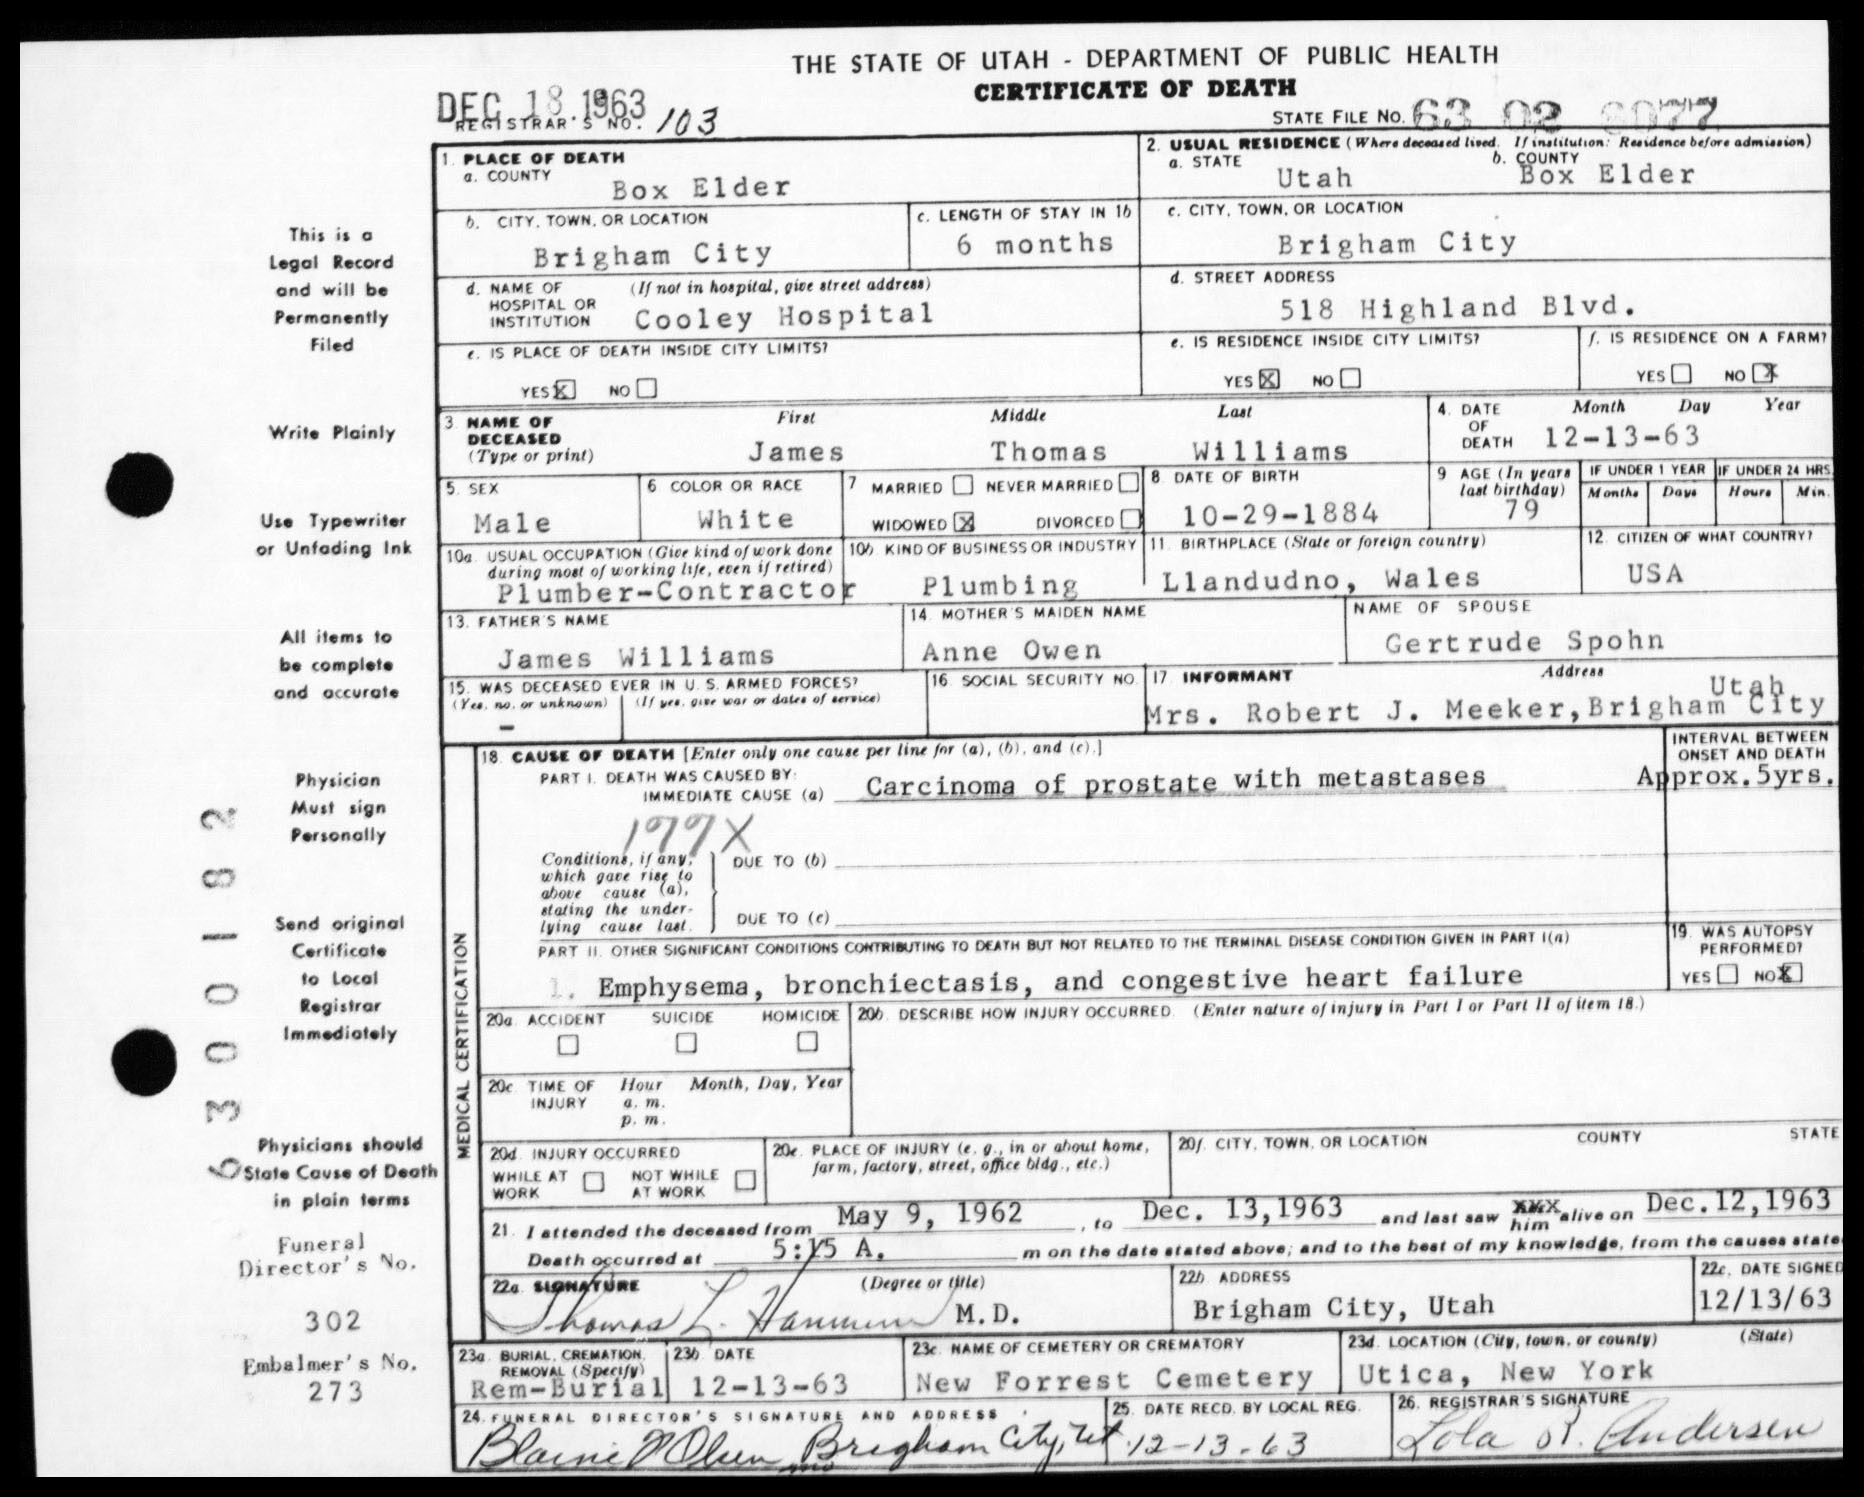 THE STATE OF UTAH - DEPARTMENT OF PUBLIC HEALTH
CERTIFICATE OF DEATH
DEC 18. 1963
REGISTRAR'S NO. 103
STATE FILE NO. 63 02 6077
1. PLACE OF DEATH
a. COUNTY
Box Elder
2. USUAL RESIDENCE (Where deceased lived. If institution: Residence before admission)
a. STATE
Utah
b. COUNTY
Box Elder
b. CITY, TOWN, OR LOCATION
Brigham City
c. LENGTH OF STAY IN 1b
6 months
c. CITY, TOWN, OR LOCATION
Brigham City
d. NAME OF (If not in hospital, give street address)
HOSPITAL OR
INSTITUTION Cooley Hospital
d. STREET ADDRESS
518 Highland Blvd.
e. IS PLACE OF DEATH INSIDE CITY LIMITS?
YES X NO
e. IS RESIDENCE INSIDE CITY LIMITS?
YES X NO
f. IS RESIDENCE ON A FARM?
YES NO X
3. NAME OF
DECEASED
(Type or print)
First Middle Last
James Thomas Williams
4. DATE
OF
DEATH
Month Day Year
12-13-63
5. SEX
Male
6 COLOR OR RACE
White
7 MARRIED NEVER MARRIED
WIDOWED X DIVORCED
8. DATE OF BIRTH
10-29-1884
9 AGE (In years
last birthday)
79
IF UNDER 1 YEAR
Months Days
IF UNDER 24 HRS.
Hours Min.
10a. USUAL OCCUPATION (Give kind of work done
during most of working life, even if retired)
Plumber-Contractor
10b. KIND OF BUSINESS OR INDUSTRY
Plumbing
11. BIRTHPLACE (State or foreign country)
Llandudno, Wales
12. CITIZEN OF WHAT COUNTRY?
USA
13. FATHER'S NAME
James Williams
14. MOTHER'S MAIDEN NAME
Anne Owen
NAME OF SPOUSE
Gertrude Spohn
15. WAS DECEASED EVER IN U. S. ARMED FORCES?
(Yes, no, or unknown) (If yes, give war or dates of service)
-
16 SOCIAL SECURITY NO.
17. INFORMANT Address
Utah
Mrs. Robert J. Meeker, Brigham City
MEDICAL CERTIFICATION
18. CAUSE OF DEATH [Enter only one cause per line for (a), (b), and (c).]
PART I. DEATH WAS CAUSED BY:
IMMEDIATE CAUSE (a) Carcinoma of prostate with metastases
INTERVAL BETWEEN
ONSET AND DEATH
Approx.5yrs.
177X
Conditions, if any,
which gave rise to
above cause (a),
stating the under-
lying cause last.
DUE TO (b)
DUE TO (c)
PART II. OTHER SIGNIFICANT CONDITIONS CONTRIBUTING TO DEATH BUT NOT RELATED TO THE TERMINAL DISEASE CONDITION GIVEN IN PART I(a)
1. Emphysema, bronchiectasis, and congestive heart failure
19. WAS AUTOPSY
PERFORMED?
YES NO X
20a. ACCIDENT SUICIDE HOMICIDE
20b. DESCRIBE HOW INJURY OCCURRED. (Enter nature of injury in Part I or Part II of item 18.)
20c. TIME OF Hour Month, Day, Year
INJURY a. m.
p. m.
20d. INJURY OCCURRED
WHILE AT
WORK
NOT WHILE
AT WORK
20e. PLACE OF INJURY (e. g., in or about home,
farm, factory, street, office bldg., etc.)
20f. CITY, TOWN, OR LOCATION COUNTY STATE
21. I attended the deceased from May 9, 1962, to Dec. 13,1963 and last saw xxx him alive on Dec.12,1963
Death occurred at 5:15 A. m on the date stated above; and to the best of my knowledge, from the causes state
22a. SIGNATURE (Degree or title)
Thomas L. M.D.
22b. ADDRESS
Brigham City, Utah
22c. DATE SIGNED
12/13/63
23a. BURIAL, CREMATION,
REMOVAL (Specify)
Rem-Burial
23b. DATE
12-13-63
23c. NAME OF CEMETERY OR CREMATORY
New Forrest Cemetery
23d. LOCATION (City, town, or county) (State)
Utica, New York
24. FUNERAL DIRECTOR'S SIGNATURE AND ADDRESS
Blaine Olsen Brigham City, Ut
25. DATE RECD. BY LOCAL REG.
12-13-63
26. REGISTRAR'S SIGNATURE
Lola R. Andersen
This is a
Legal Record
and will be
Permanently
Filed
Write Plainly
Use Typewriter
or Unfading Ink
All items to
be complete
and accurate
Physician
Must sign
Personally
Send original
Certificate
to Local
Registrar
Immediately
Physicians should
State Cause of Death
in plain terms
Funeral
Director's No.
302
Embalmer's No.
273
6300182